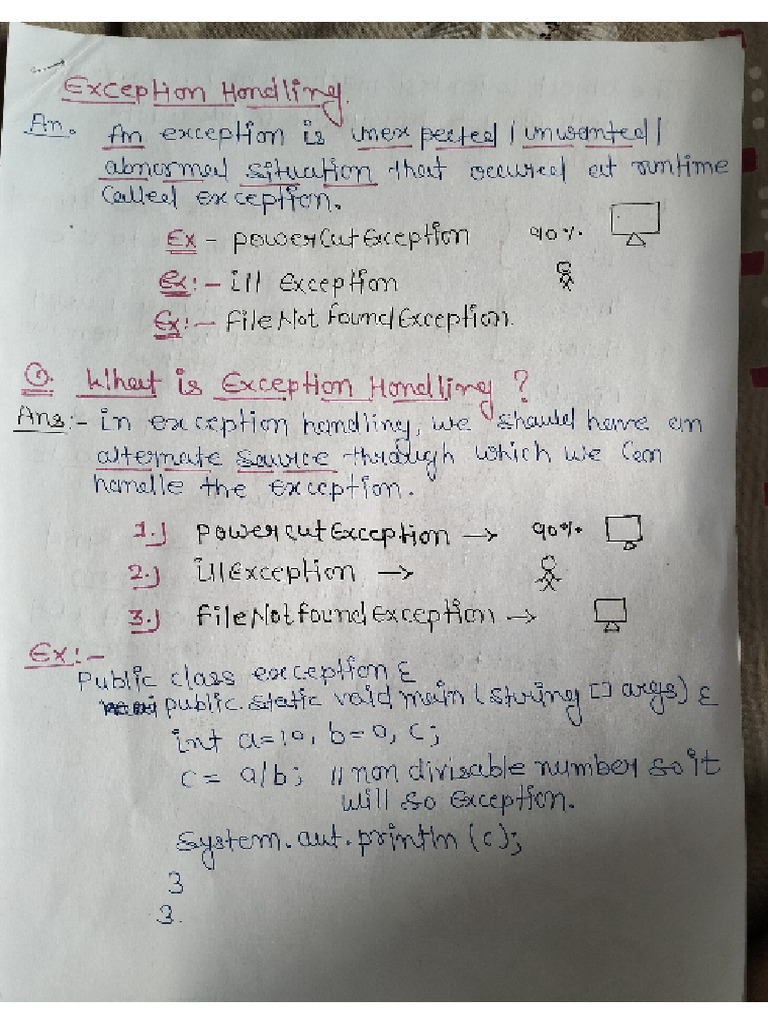 Exception Handling.
An. An exception is unexpected / unwanted /
abnormal situation that occured at runtime
called exception.
Ex - powercutException 90%.
Ex:- ill Exception
Ex:- fileNotFoundException.
Q. What is Exception Handling ?
Ans:- in exception handling, we should have an
alternate source through which we can
handle the exception.
1.) powercutException → 90%.
2.) illException →
3.) fileNotFoundException →
Ex:-
Public class exception {
public static void main (string [] args) {
int a=10, b=0, c;
c = a/b; // non divisable number so it
will so Exception.
System.out.println (c);
}
}